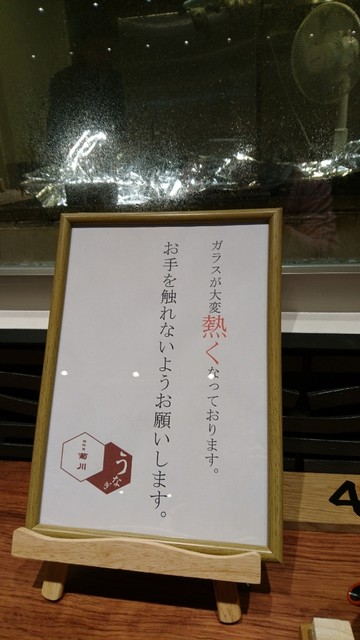 ガラスが大変熱くなっております。
お手を触れないようお願いします。
菊川
うなぎ
4